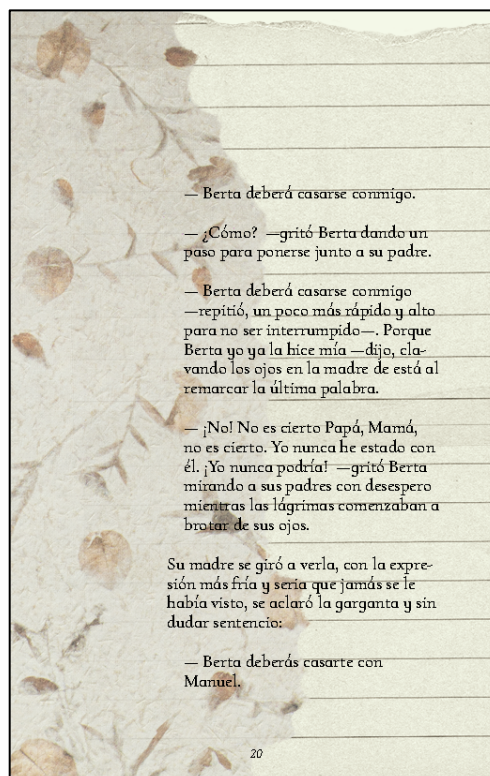 — Berta deberá casarse conmigo.
— ¿Cómo? —gritó Berta dando un
paso para ponerse junto a su padre.
— Berta deberá casarse conmigo
—repitió, un poco más rápido y alto
para no ser interrumpido—. Porque
Berta yo ya la hice mía —dijo, cla-
vando los ojos en la madre de está al
remarcar la última palabra.
— ¡No! No es cierto Papá, Mamá,
no es cierto. Yo nunca he estado con
él. ¡Yo nunca podría! —gritó Berta
mirando a sus padres con desespero
mientras las lágrimas comenzaban a
brotar de sus ojos.
Su madre se giró a verla, con la expre-
sión más fría y seria que jamás se le
había visto, se aclaró la garganta y sin
dudar sentencio:
— Berta deberás casarte con
Manuel.
20